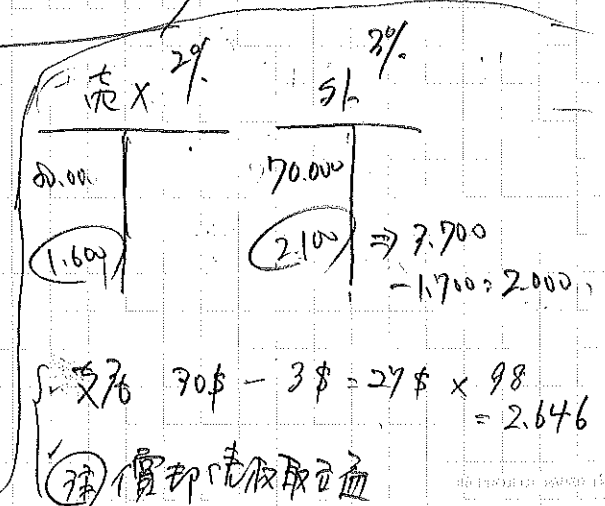 売× 2% S/ 3%
80.000 70.000
1.600 2.100 ⇒ 3.700
-1.700=2.000
30$ - 3$ = 27$ × 98
= 2.646
償却債権取立益